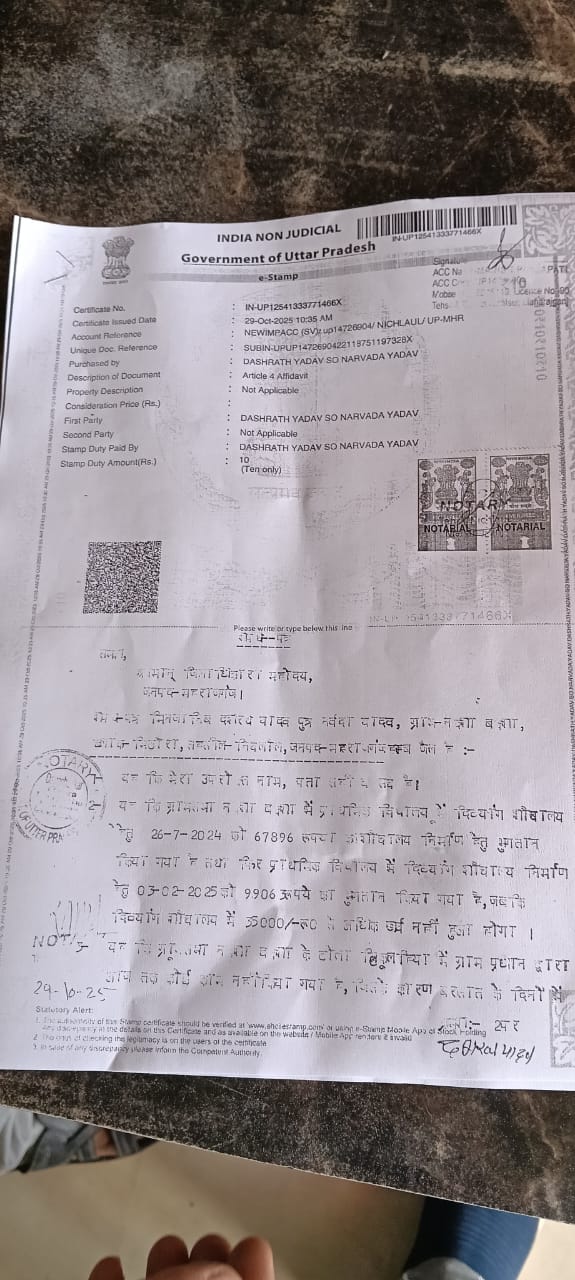 INDIA NON JUDICIAL
IN-UP12541333771466X
Government of Uttar Pradesh
e-Stamp
Signature
ACC Na
ACC C
Mobse
Licence No
Tehs
Certificate No. : IN-UP12541333771466X
Certificate Issued Date : 29-Oct-2025 10:35 AM
Account Reference : NEWIMPACC (SV)/ up14726904/ NICHLAUL/ UP-MHR
Unique Doc. Reference : SUBIN-UPUP1472690422118751197328X
Purchased by : DASHRATH YADAV SO NARVADA YADAV
Description of Document : Article 4 Affidavit
Property Description : Not Applicable
Consideration Price (Rs.) :
First Party : DASHRATH YADAV SO NARVADA YADAV
Second Party : Not Applicable
Stamp Duty Paid By : DASHRATH YADAV SO NARVADA YADAV
Stamp Duty Amount(Rs.) : 10
(Ten only)
NOTARY
NOTARIAL NOTARIAL
Please write or type below this line
समक्ष,
श्रीमान् जिलाधिकारी महोदय,
जनपद-महराजगंज।
यादव पुत्र नर्वदा यादव, ग्राम-
तहसील-निचलौल, जनपद-महराजगंज है :-
NOTARY
यह कि मेरा उपरोक्त नाम, पता सही व सच है।
2- यह कि ग्रामसभा में प्राथमिक विद्यालय में दिव्यांग शौचालय
हेतु 26-7-2024 को 67896 रूपया शौचालय निर्माण हेतु भुगतान
किया गया है तथा फिर प्राथमिक विद्यालय में दिव्यांग शौचालय निर्माण
हेतु 03-02-2025 को 9906 रूपये का भुगतान किया गया है, जबकि
दिव्यांग शौचालय में 35000/-रू0 से अधिक खर्च नहीं हुआ होगा।
यह कि ग्रामसभा के टोला में ग्राम प्रधान द्वारा
आज तक कोई काम नहीं किया गया है, जिसके कारण बरसात के दिनों में
29-10-25
Statutory Alert:
1. The authenticity of this Stamp certificate should be verified at 'www.shcilestamp.com' or using e-Stamp Mobile App of Stock Holding
Any discrepancy in the details on this Certificate and as available on the website / Mobile App renders it invalid
2. The onus of checking the legitimacy is on the users of the certificate
3. In case of any discrepancy please inform the Competent Authority.